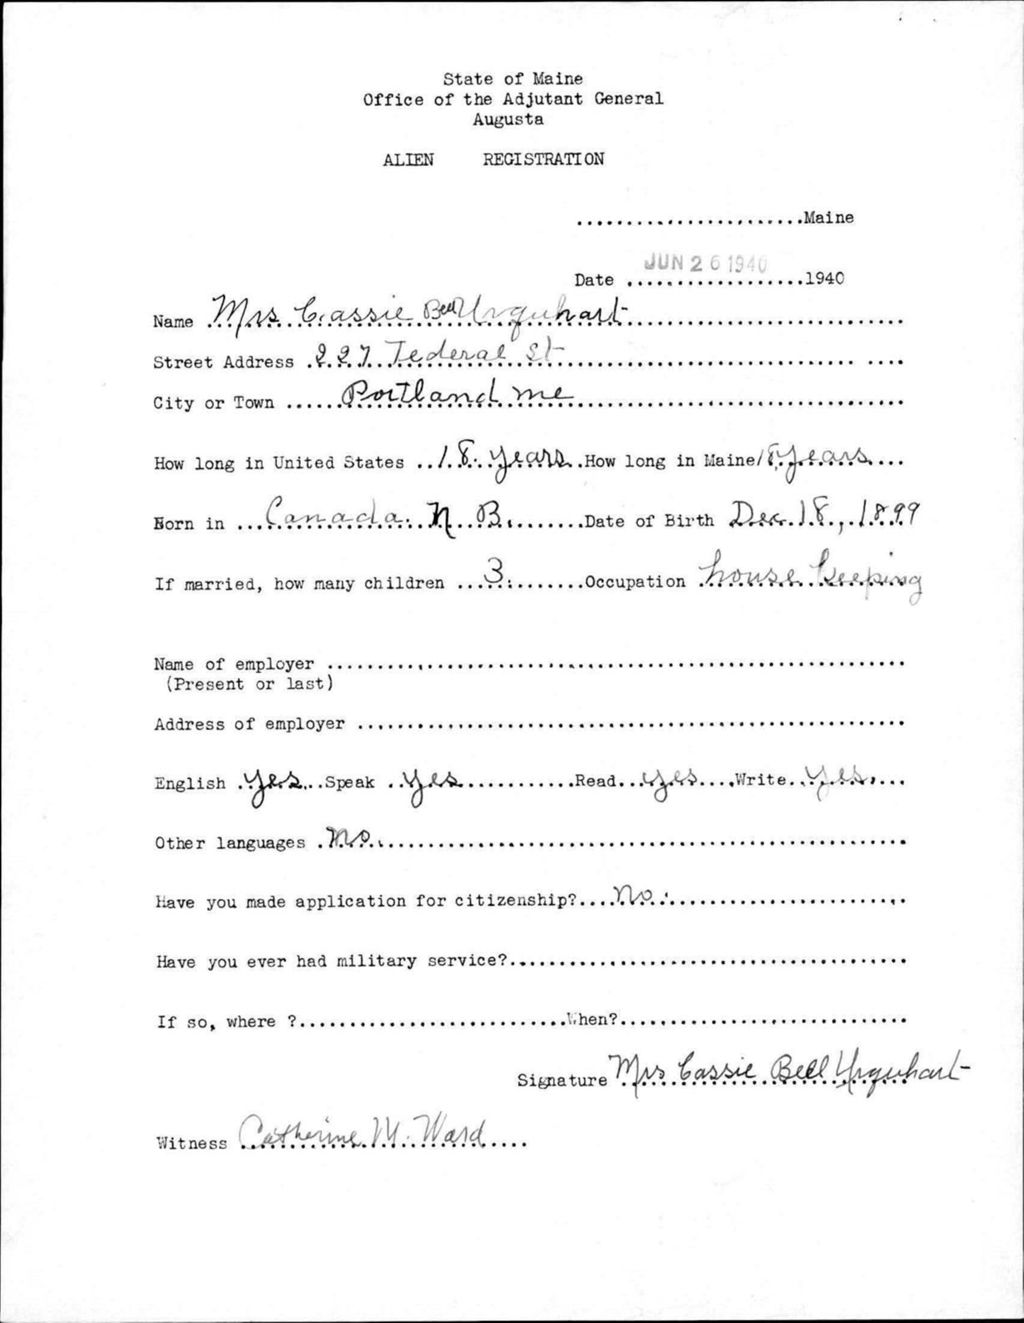 State of Maine
Office of the Adjutant General
Augusta
ALIEN REGISTRATION
.......................Maine
JUN 26 1940
Date ..................1940
Name Mrs Cassie Bell Urquhart
Street Address 227 Federal St
City or Town Portland Me
How long in United States 18 years How long in Maine 18 years
Born in Canada N B. Date of Birth Dec. 18, 1899
If married, how many children 3 Occupation house keeping
Name of employer
(Present or last)
Address of employer
English yes Speak yes Read yes Write yes
Other languages no
Have you made application for citizenship? no
Have you ever had military service?
If so, where ? When?
Signature Mrs Cassie Bell Urquhart
Witness Catherine M. Ward